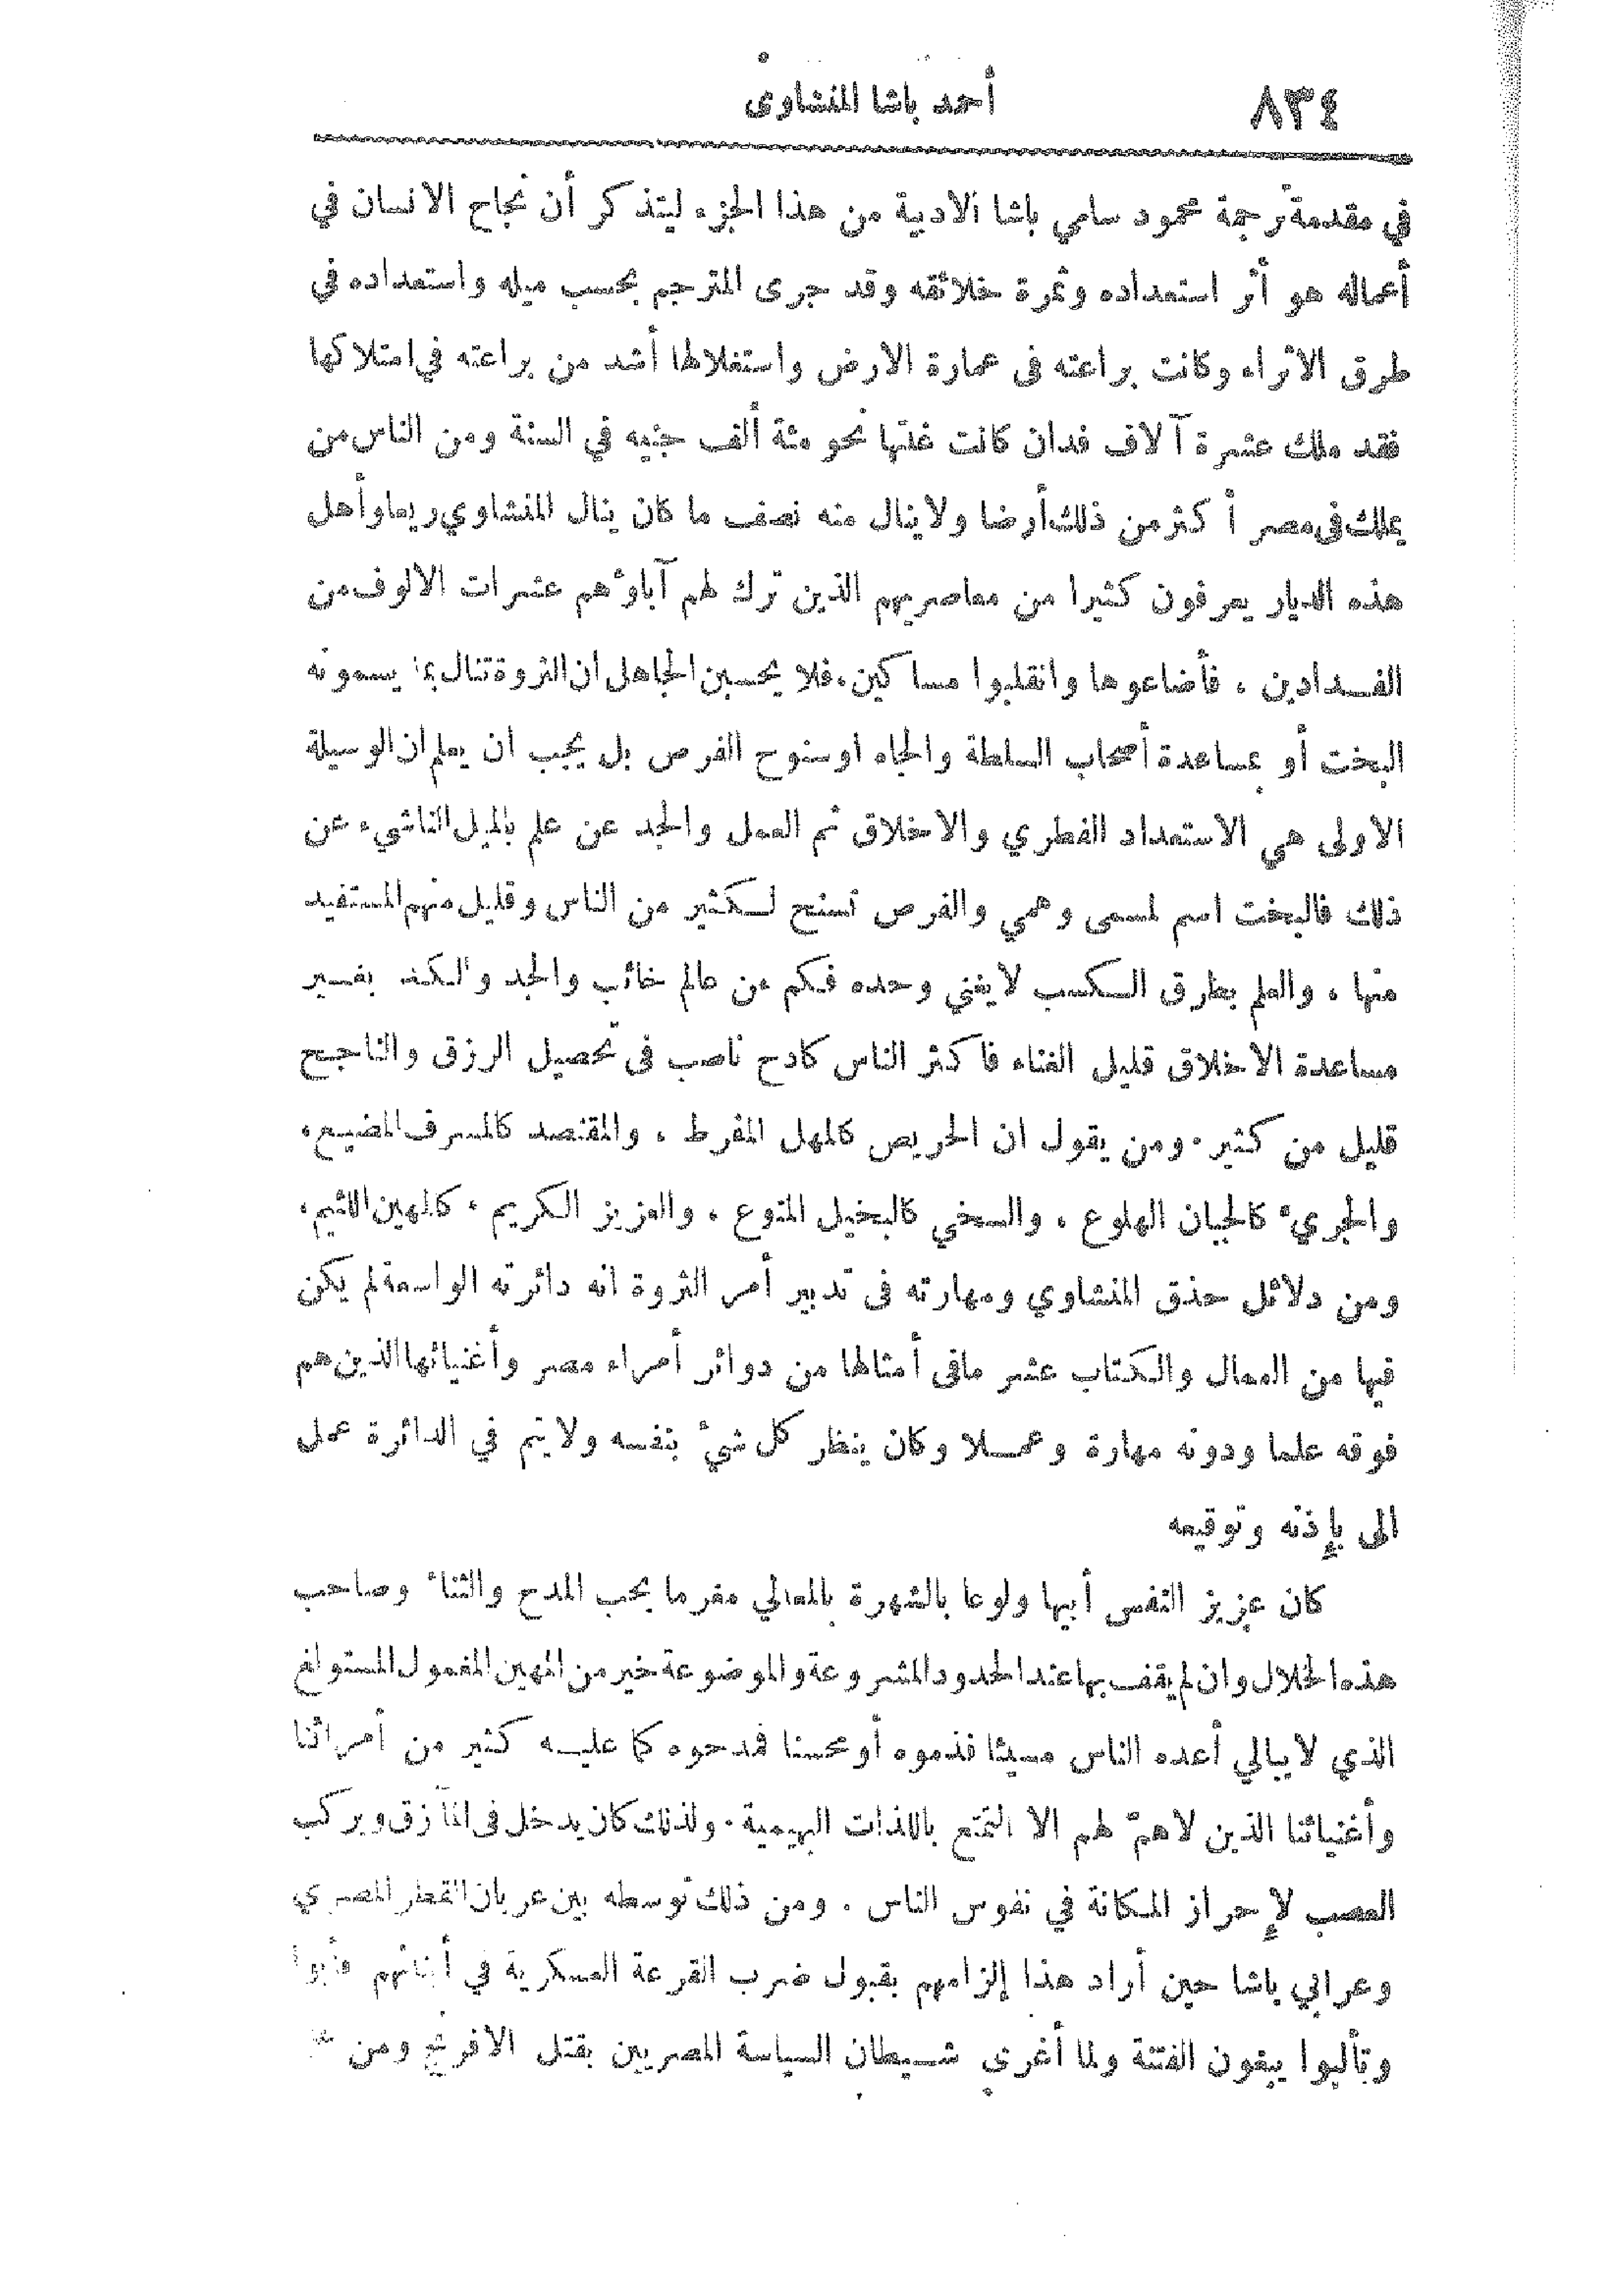 ٨٣٤
أحمد باشا المنشاوى
في مقدمة ترجمة محمود سامي باشا الادبية من هذا الجزء ليتذكر أن نجاح الانسان في
أعماله هو أثر استعداده وثمرة خلائقه وقد جرى المترجم بحسب ميله واستعداده في
طرق الاثراء وكانت براعته فى عمارة الارض واستغلالها أشد من براعته في امتلاكها
فقد ملك عشرة آلاف فدان كانت غلتها نحو مئة ألف جنيه في السنة ومن الناس من
يملك فى مصر أكثر من ذلك أرضا ولا ينال منه نصف ما كان ينال المنشاوي ريعا وأهل
هذه الديار يعرفون كثيرا من معاصريهم الذين ترك لهم آباؤهم عشرات الالوف من
الفــدادين ، فأضاعوها وانقلبوا مساكين، فلا يحسبن الجاهل ان الثروة تنال بما يسمونه
البخت أو بمساعدة أصحاب السلطة والجاه او سنوح الفرص بل يجب ان يعلم ان الوسيلة
الاولى هي الاستعداد الفطري والاخلاق ثم العمل والجد عن علم بالميل الناشيء عن
ذلك فالبخت اسم لمسمى وهمي والفرص تسنح لــكثير من الناس وقليل منهم المستفيد
منها ، والعلم بطرق الــكسب لا يغني وحده فــكم من عالم خائب والجد والــكد بغــير
مساعدة الاخلاق قليل الغناء فأكثر الناس كادح ناصب فى تحصيل الرزق والناجــح
قليل من كثير ٠ ومن يقول ان الحريص كالمهل المفرط ، والمقتصد كالمسرف المضيــع،
والجريء كالجبان الهلوع ، والسخي كالبخيل المنوع ، والعزيز الــكريم ، كالمهين اللئيم،
ومن دلائل حذق المنشاوي ومهارته فى تدبير أمر الثروة انه دائرته الواسعة لم يكن
فيها من العمال والــكتاب عشر مافى أمثالها من دوائر أمراء مصر وأغنيائها الذين هم
فوقه علما ودونه مهارة وعمــلا وكان ينظر كل شيء بنفسه ولا يتم في الدائرة عمل
الى بإذنه وتوقيعه
كان عزيز النفس أبيها ولوعا بالشهرة بالمعالي مغرما بحب المدح والثناء وصاحب
هذه الخلال وان لم يقف بها عند الحدود المشروعة والموضوعة خير من المهين المغمول المستولغ
الذي لا يبالي أعده الناس مسيئا فذموه أو محسنا فمدحوه كما عليــه كثير من أمرائنا
وأغنيائنا الذين لاهمّ لهم الا التمتع باللذات البهيمية ٠ ولذلك كان يدخل فى المآزق ويركب
الصعب لإحراز المــكانة في نفوس الناس . ومن ذلك توسطه بين عربان القطر المصري
وعرابي باشا حين أراد هذا إلزامهم بقبول ضرب القرعة العسكرية في أبنائهم فأبوا
وتألبوا يبغون الفتنة ولما أغرى شــيطان السياسة المصريين بقتل الافرنج ومن